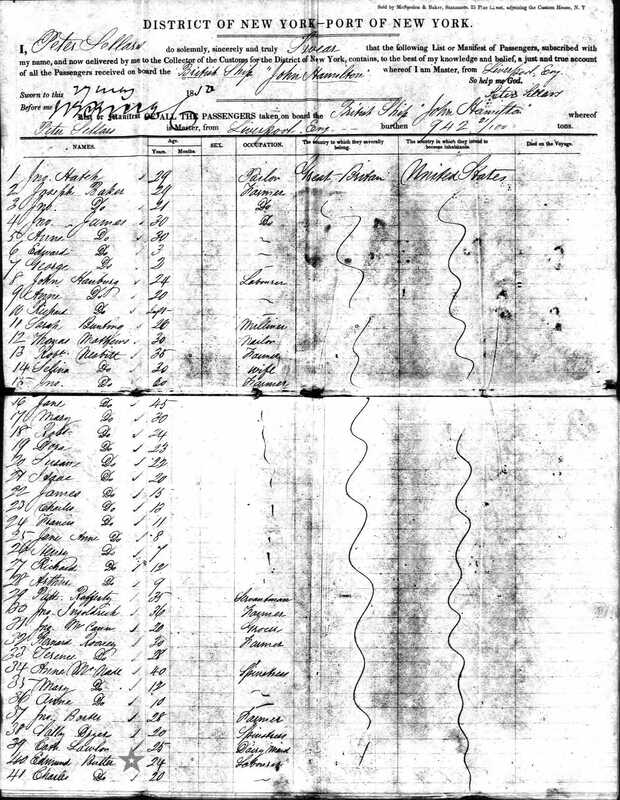 Sold by McSpedon & Baker, Stationers, 25 Pine Street, adjoining the Custom House, N. Y
DISTRICT OF NEW YORK—PORT OF NEW YORK.
I, Peter Sellars do solemnly, sincerely and truly Swear that the following List or Manifest of Passengers, subscribed with
my name, and now delivered by me to the Collector of the Customs for the District of New York, contains, to the best of my knowledge and belief, a just and true account
of all the Passengers received on board the British Ship "John Hamilton" whereof I am Master, from Liverpool, Eng.
Sworn to this 27 May 18 So help me God.
Before me Peter Sellars
List or Manifest OF ALL THE PASSENGERS taken on board the British Ship "John Hamilton" whereof
Peter Sellars is Master, from Liverpool, Eng. burthen 942 /100 tons.
NAMES. Age. Years. Months SEX. OCCUPATION. The country to which they severally belong. The country in which they intend to become inhabitants. Died on the Voyage.
1 Jno. Hatch 29 Great Britain United States
2 Joseph Baker 29 Farmer
3 Do 21 Do
4 Jno. James 30 Do
5 Anne Do 30
6 Edward Do 3
7 George Do 2
8 John Hanbury 24 Labourer
9 Anne Do 20
10 Richard Do
11 Sarah Bunting 26 Milliner
12 Thomas Matthews 30
13 Robt. Nesbitt 35 Farmer
14 Selina Do 20 Wife
15 Jno. Do 60 Farmer
16 Jane Do 45
17 Mary Do 30
18 Robt. Do 24
19 Do 23
20 Susan Do 22
21 Isaac Do 20
22 James Do 15
23 Charles Do 13
24 Frances Do 11
25 Jane Anne Do 8
26 Do 7
27 Richard Do 12
28 Arthur Do 9
29 Patt. Rafferty 35 Servantman
30 Jno. 36 Farmer
31 Jno. McCann 20 Grocer
32 Bernard 30 Farmer
33 Terence Do
34 Anne McNall 40 Spinstress
35 Mary Do 12
36 Anne Do 10
37 28 Farmer
38 Sally Dyer 20 Spinstress
39 Cath Lawton 25 Dairy Maid
40 Edmund Butler 24 Labourer
41 Charles Do 20